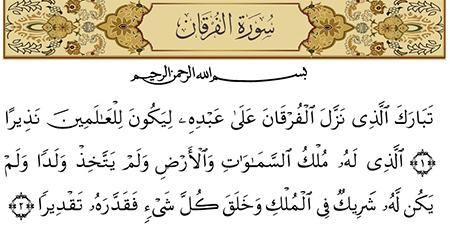 سُورَةُ الفُرْقَان
بِسْمِ اللهِ الرَّحْمٰنِ الرَّحِيمِ
تَبَارَكَ ٱلَّذِى نَزَّلَ ٱلْفُرْقَانَ عَلَىٰ عَبْدِهِۦ لِيَكُونَ لِلْعَـٰلَمِينَ نَذِيرًا
﴿١﴾ ٱلَّذِى لَهُۥ مُلْكُ ٱلسَّمَـٰوَٰتِ وَٱلْأَرْضِ وَلَمْ يَتَّخِذْ وَلَدًا وَلَمْ
يَكُن لَّهُۥ شَرِيكٌ فِى ٱلْمُلْكِ وَخَلَقَ كُلَّ شَىْءٍ فَقَدَّرَهُۥ تَقْدِيرًا ﴿٢﴾